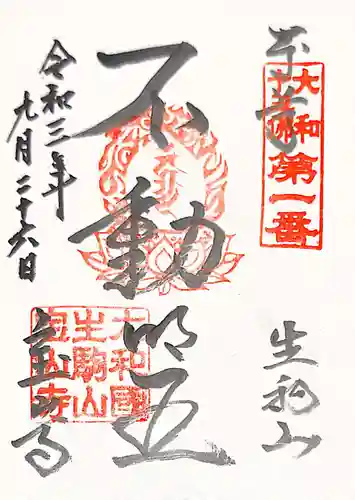 奉拝
大和
十三佛
第一番
生駒山
不動明王
大和國
生駒山
寳山寺
寳山寺
令和三年
九月二十六日